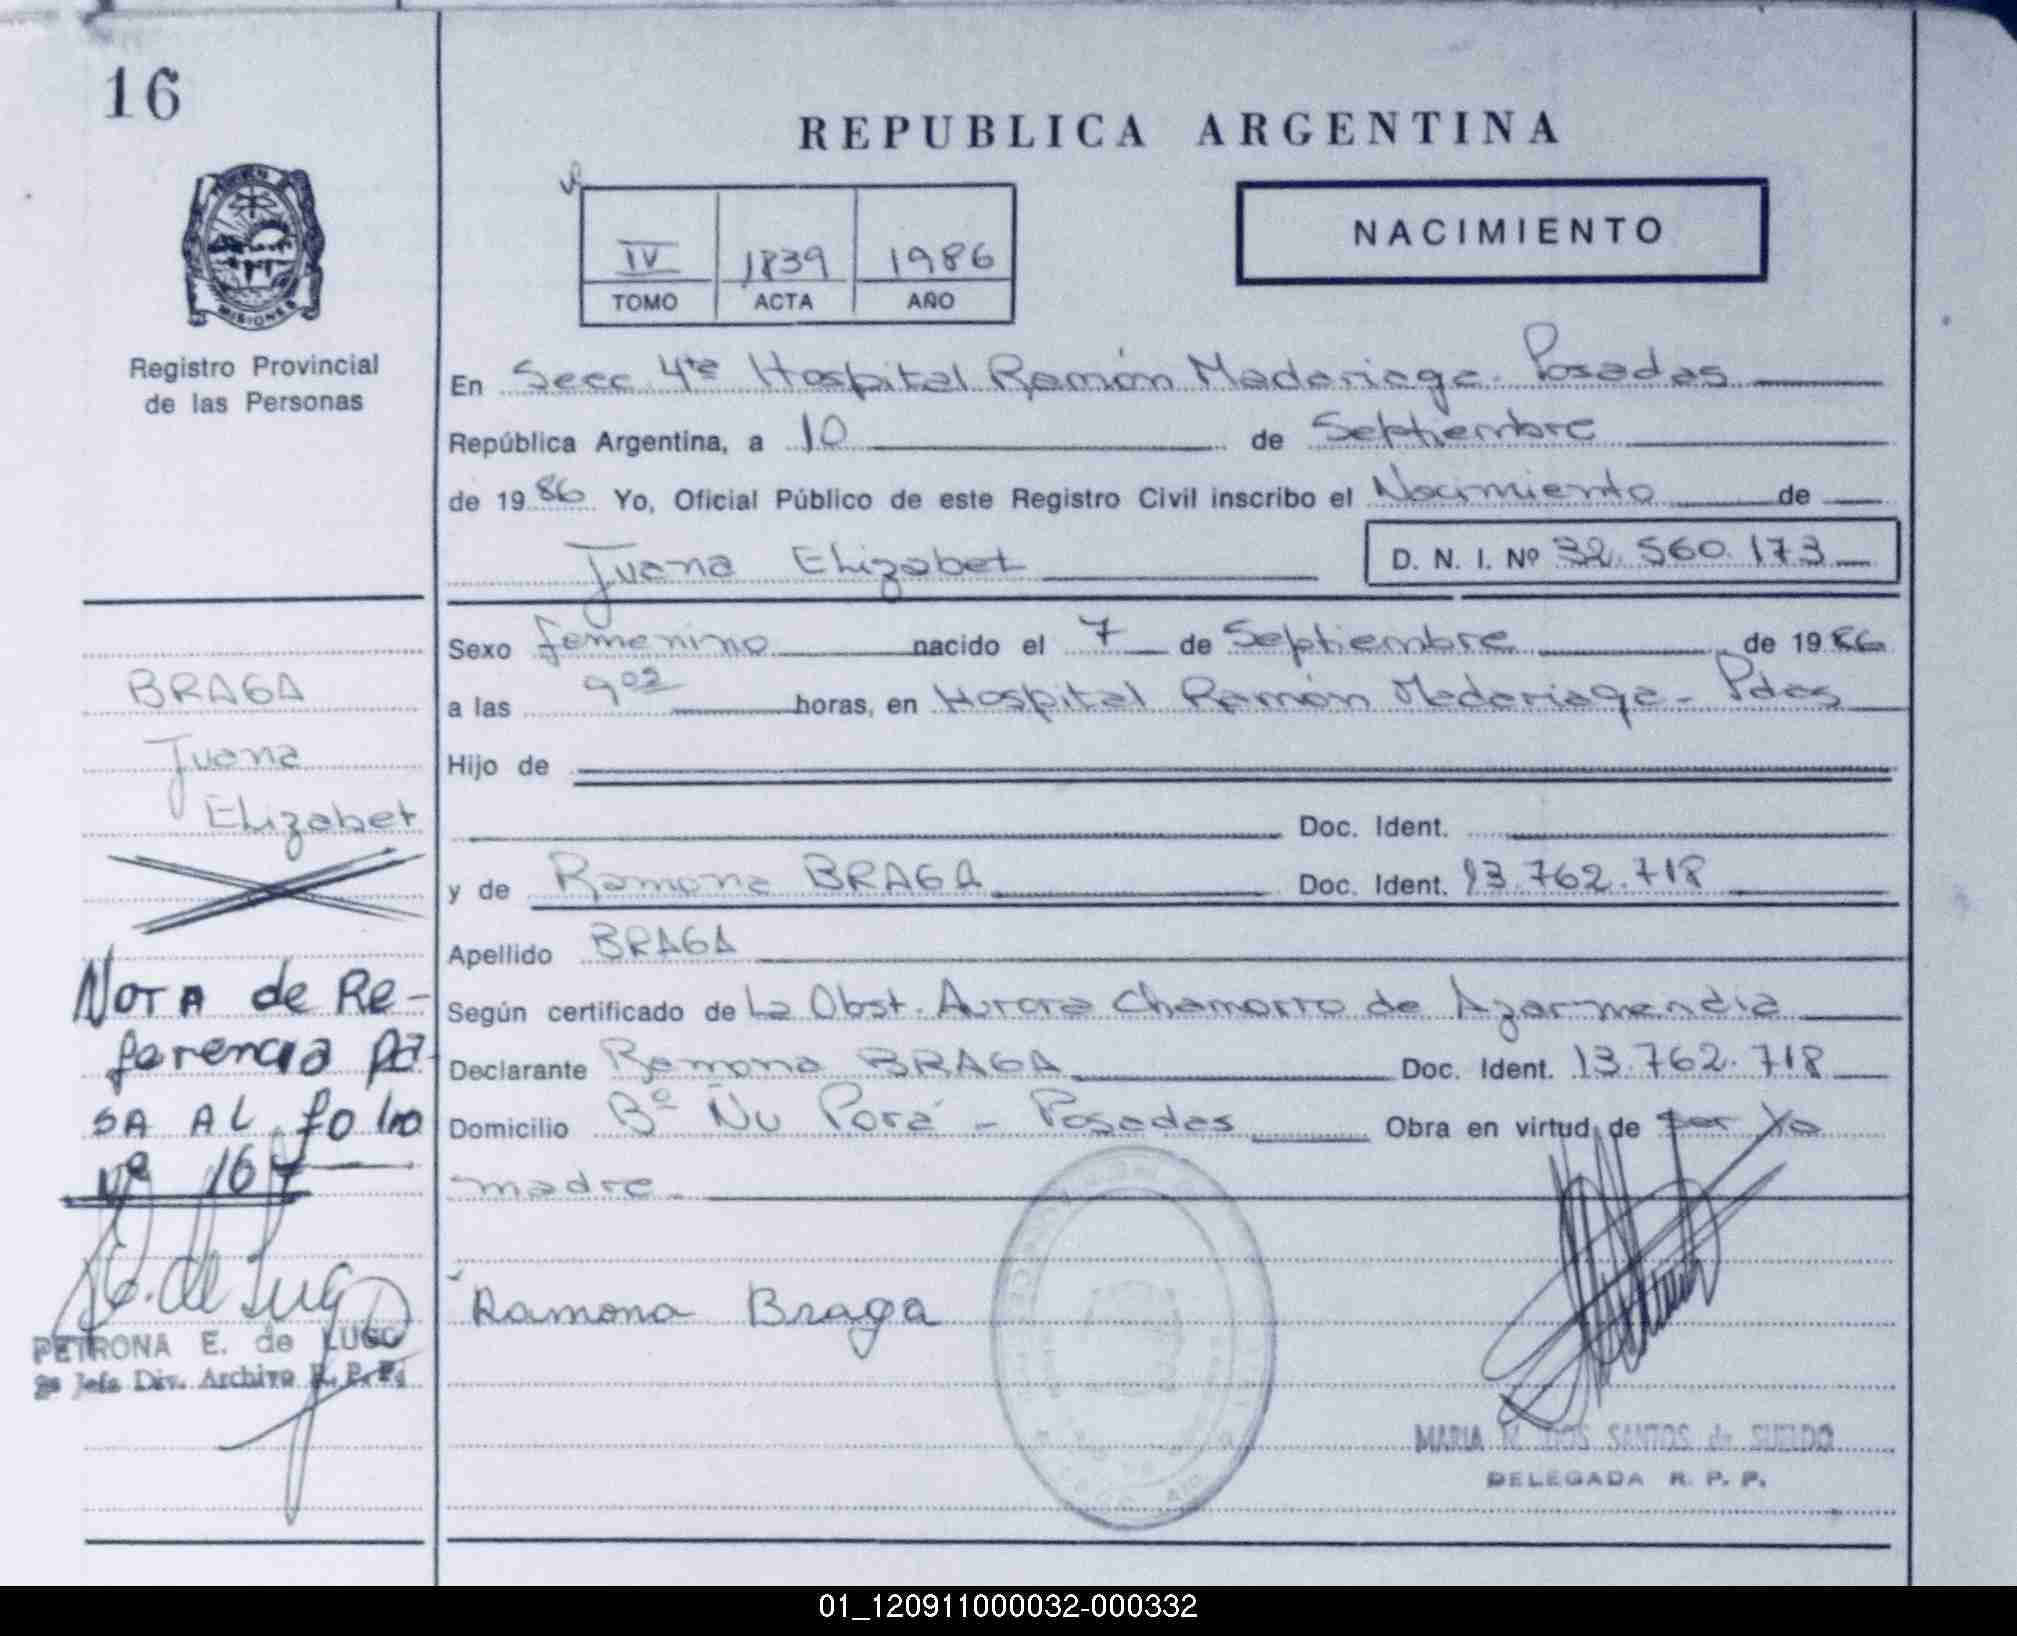 16
REPUBLICA ARGENTINA
NACIMIENTO
IV 1839 1986
TOMO ACTA AÑO
MISIONES
Registro Provincial
de las Personas
En Secc 4ta Hospital Ramón Madariaga - Posadas
República Argentina, a 10 de Septiembre
de 1986 Yo, Oficial Público de este Registro Civil inscribo el Nacimiento de
Juana Elizabet D. N. I. Nº 32.560.173
Sexo femenino nacido el 7 de Septiembre de 1986
a las 9 02 horas, en Hospital Ramón Madariaga - Pdas
Hijo de
Doc. Ident.
y de Ramona BRAGA Doc. Ident. 13.762.718
Apellido BRAGA
Según certificado de La Obst. Aurora Chamorro de Azarmendia
Declarante Ramona BRAGA Doc. Ident. 13.762.718
Domicilio Bº Ñu Porá - Posadas Obra en virtud de ser la
madre.
Ramona Braga
MARIA M. DOS SANTOS de SUELDO
DELEGADA R. P. P.
BRAGA
Juana
Elizabet
NOTA de Re-
ferencia pa
SA AL folio
Nº 167
E. de Lugo
PETRONA E. de LUGO
Jefa Div. Archivo R. P. P.
01_120911000032-000332